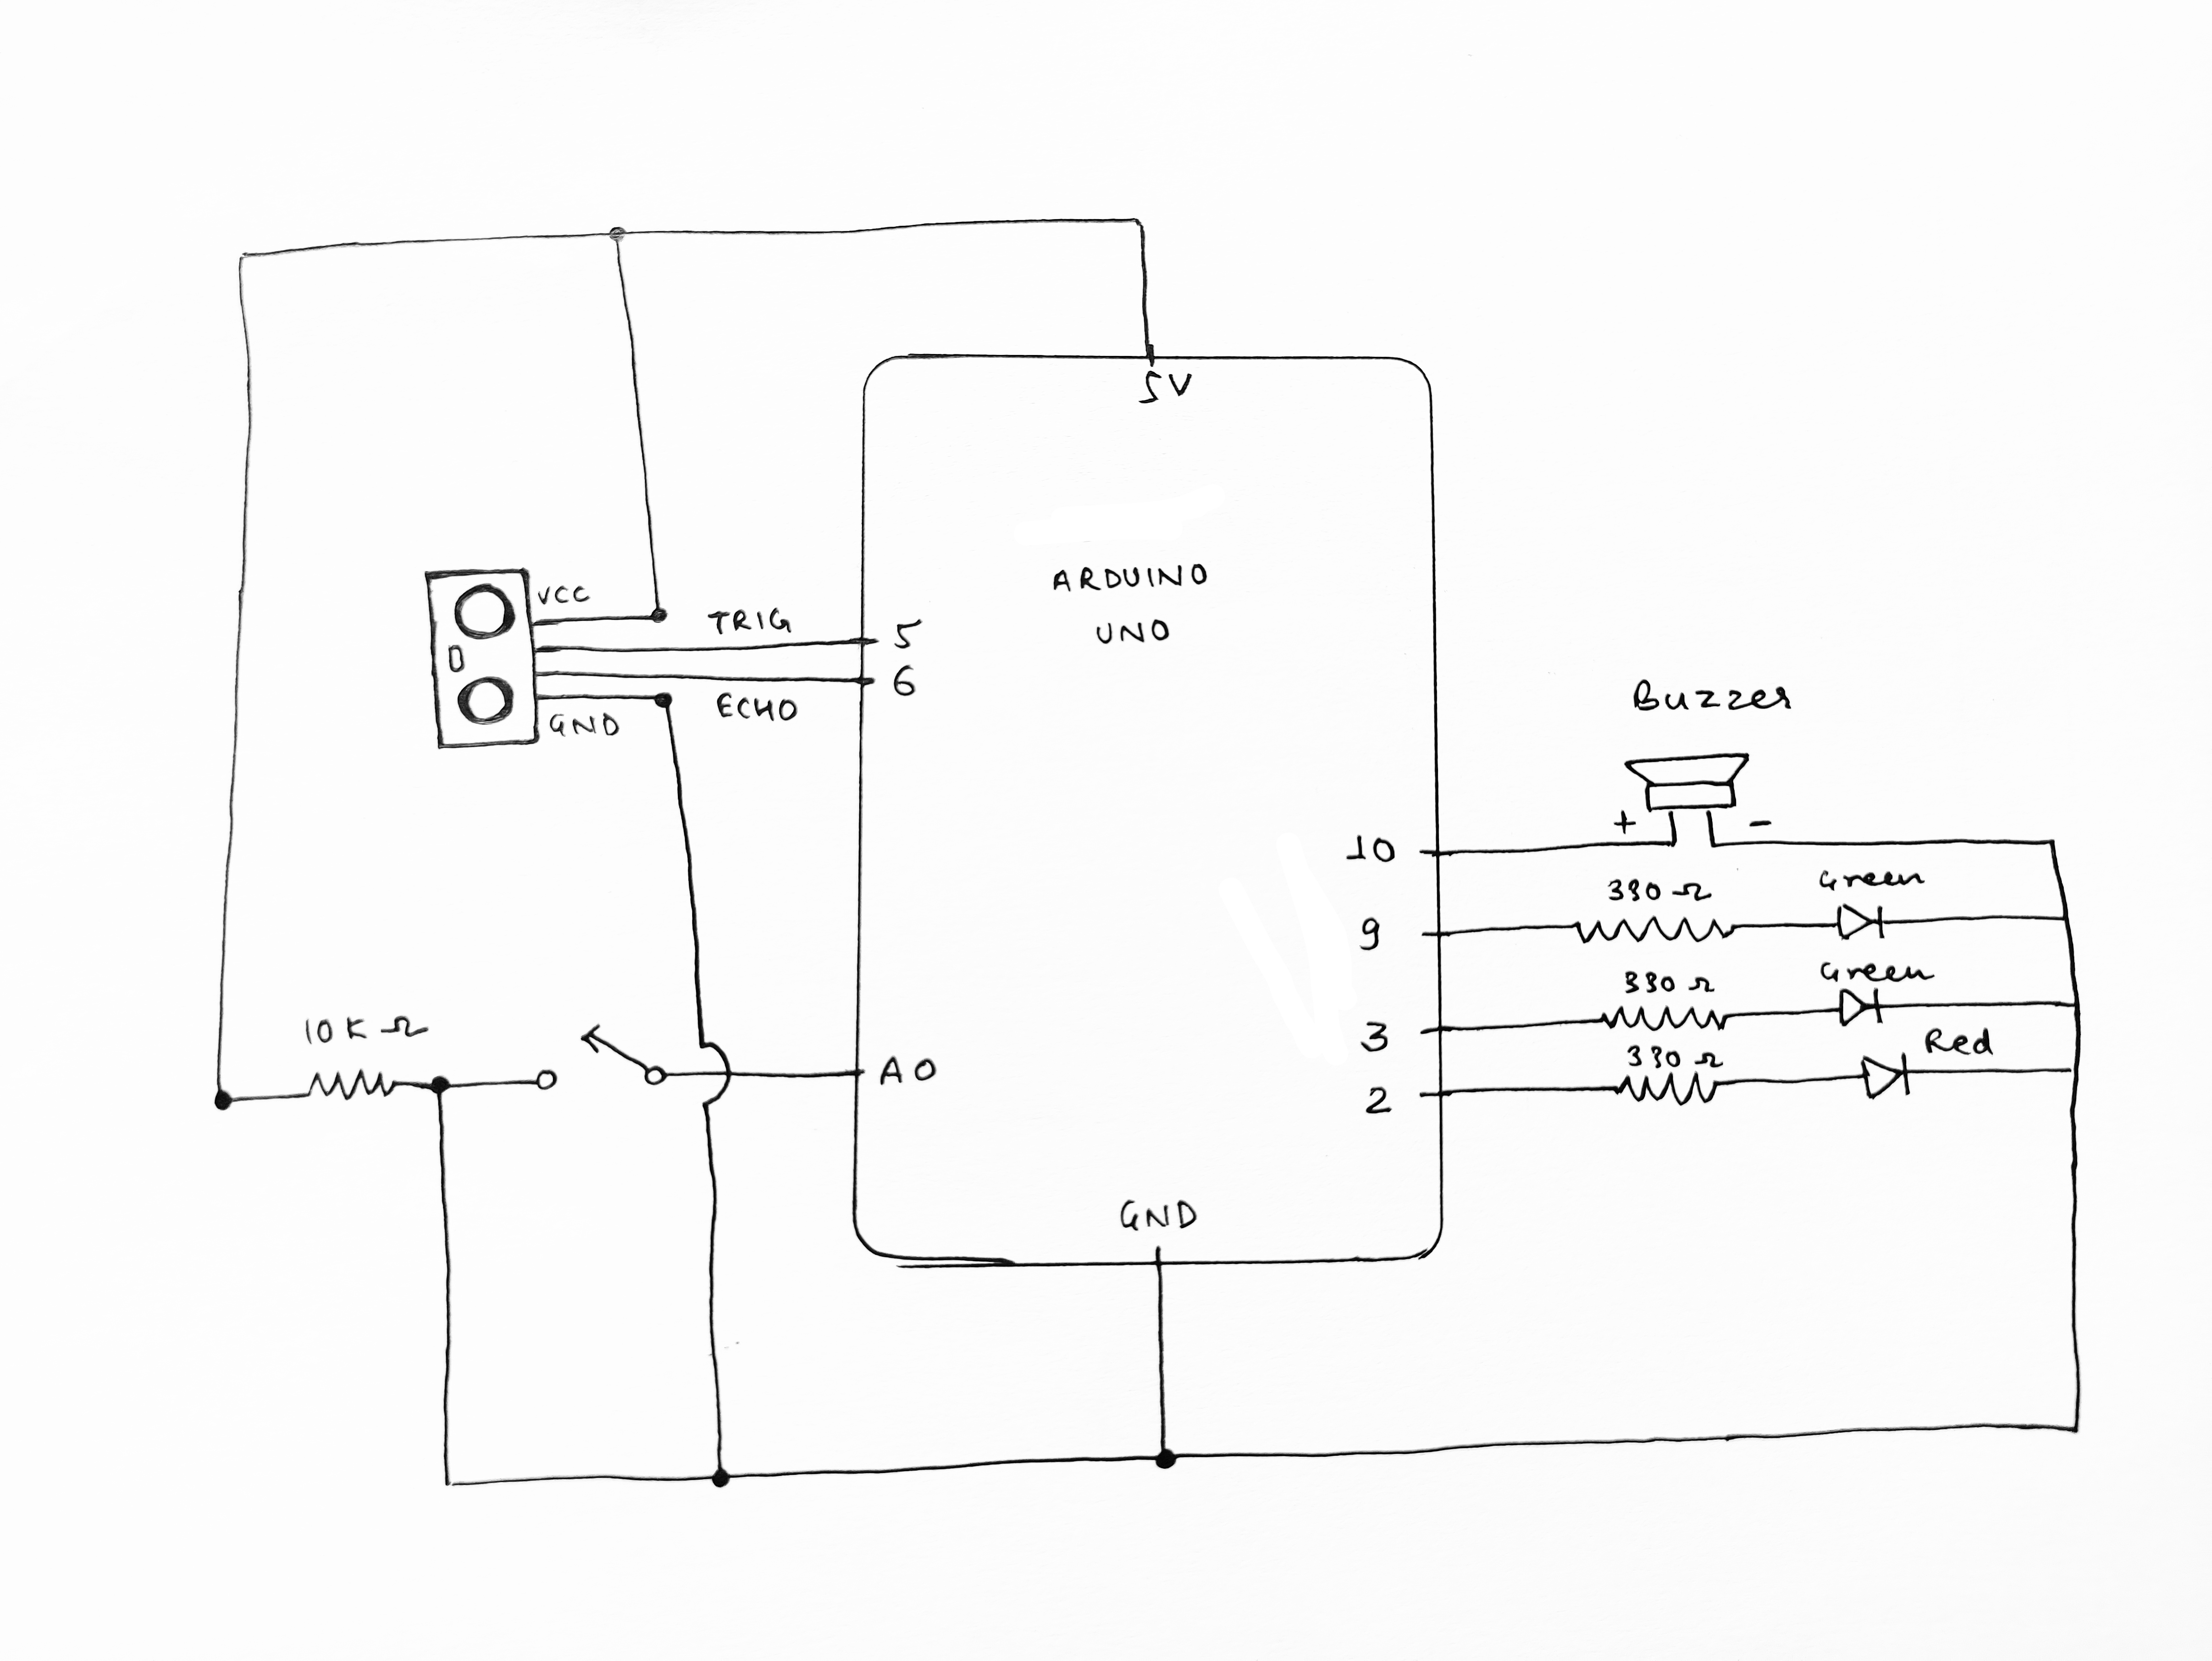 5V
ARDUINO
UNO
VCC
TRIG
5
6
ECHO
GND
Buzzer
+ -
10
330 Ω
Green
9
330 Ω
Green
3
330 Ω
Red
2
10K Ω
A0
GND